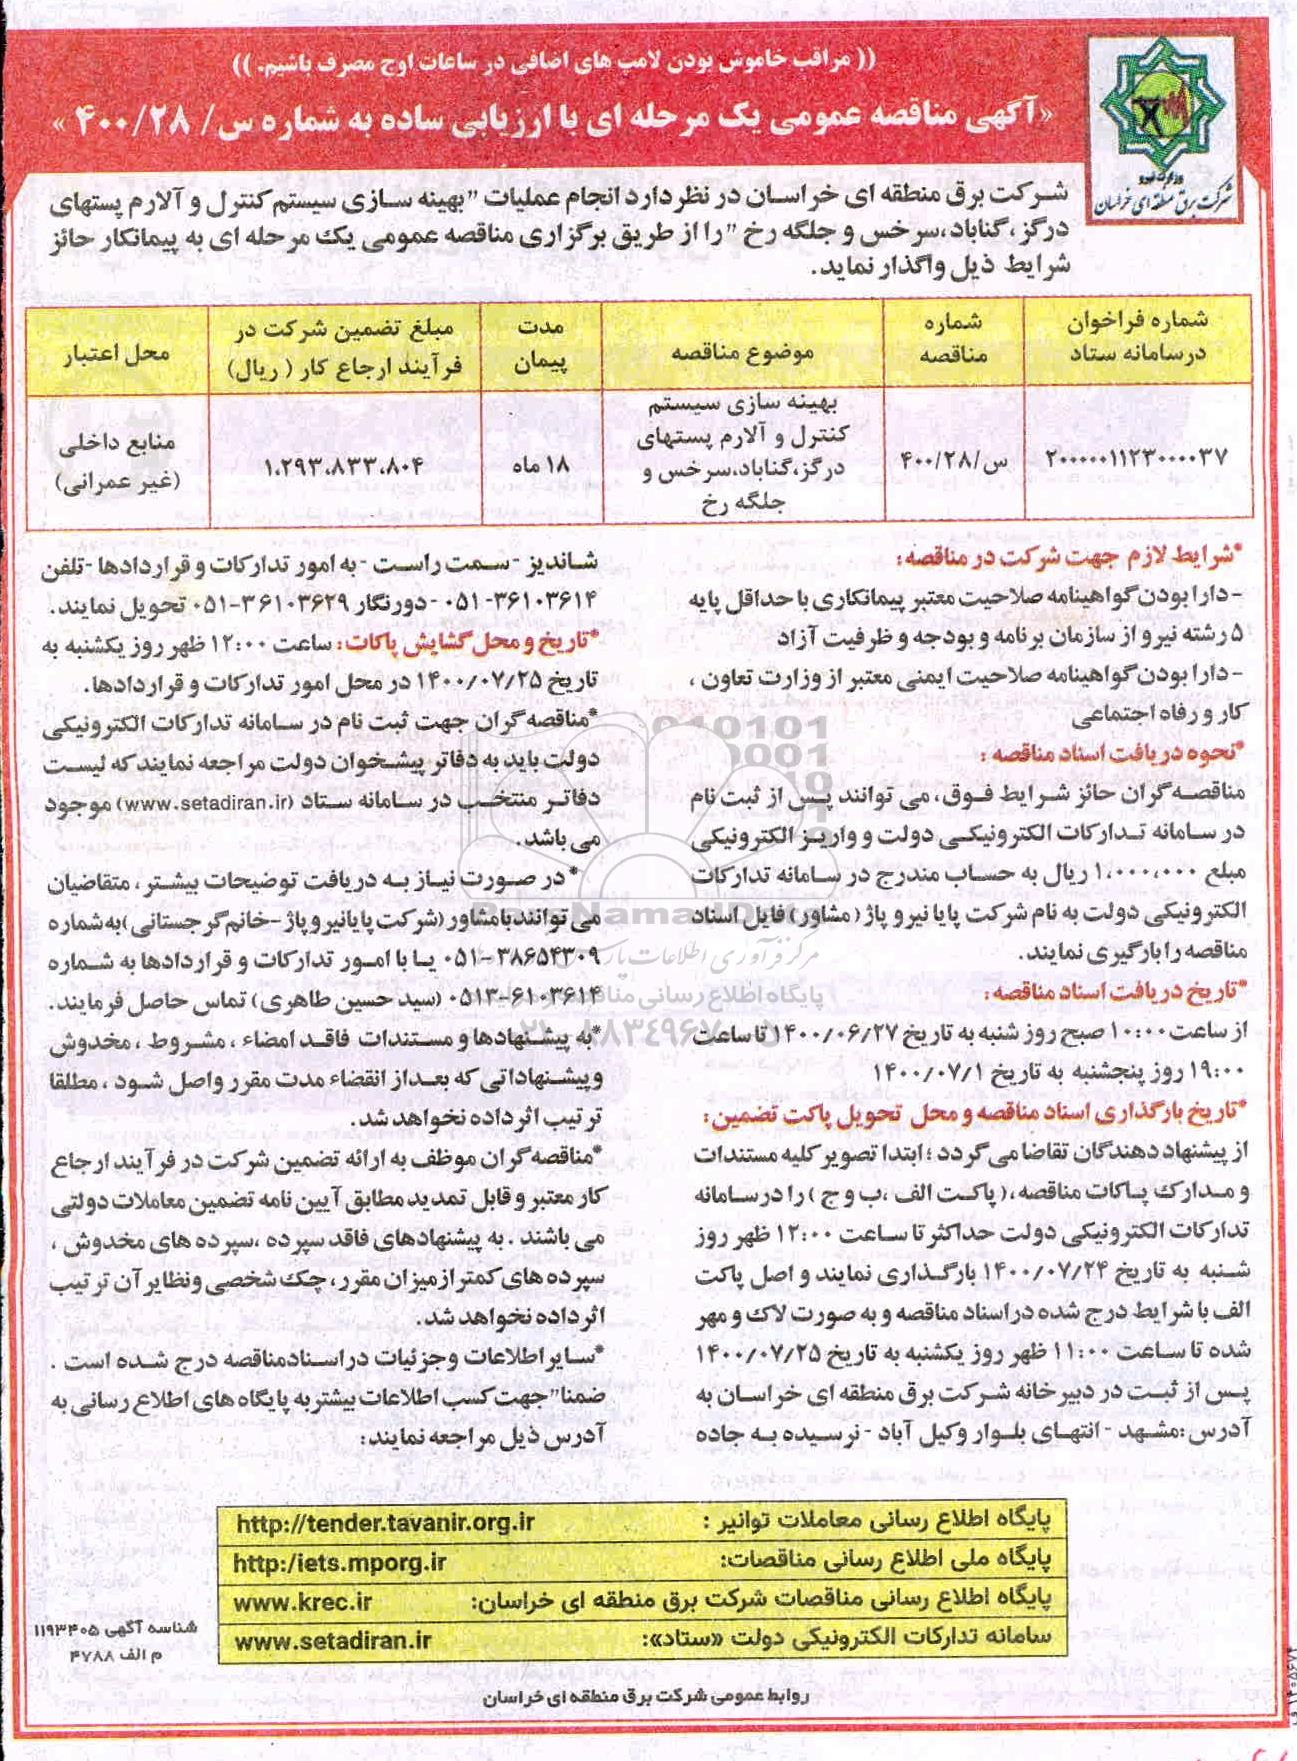 (( مراقب خاموش بودن لامپ های اضافی در ساعات اوج مصرف باشیم. ))
«آگهی مناقصه عمومی یک مرحله ای با ارزیابی ساده به شماره س/ ۴۰۰/۲۸ »
وزارت نیرو
شرکت برق منطقه ای خراسان
شرکت برق منطقه ای خراسان در نظر دارد انجام عملیات "بهینه سازی سیستم کنترل و آلارم پستهای
درگز، گناباد،سرخس و جلگه رخ "را از طریق برگزاری مناقصه عمومی یک مرحله ای به پیمانکار حائز
شرایط ذیل واگذار نماید.
شماره فراخوان
درسامانه ستاد
شماره
مناقصه
موضوع مناقصه
مدت
پیمان
مبلغ تضمین شرکت در
فرآیند ارجاع کار ( ریال)
محل اعتبار
۲۰۰۰۰۰۱۱۲۳۰۰۰۰۳۷
س/۴۰۰/۲۸
بهینه سازی سیستم
کنترل و آلارم پستهای
درگز،گناباد،سرخس و
جلگه رخ
۱۸ ماه
۱،۲۹۳،۸۳۳،۸۰۴
منابع داخلی
(غیر عمرانی)
*شرایط لازم جهت شرکت در مناقصه:
-دارا بودن گواهینامه صلاحیت معتبر پیمانکاری با حداقل پایه
۵ رشته نیرو از سازمان برنامه و بودجه و ظرفیت آزاد
-دارا بودن گواهینامه صلاحیت ایمنی معتبر از وزارت تعاون ،
کار و رفاه اجتماعی
*نحوه دریافت اسناد مناقصه :
مناقصه گران حائز شرایط فوق، می توانند پس از ثبت نام
در سامانه تدارکات الکترونیکی دولت و واریز الکترونیکی
مبلغ ۱،۰۰۰،۰۰۰ ریال به حساب مندرج در سامانه تدارکات
الکترونیکی دولت به نام شرکت پایا نیرو پاژ ( مشاور) فایل اسناد
مناقصه را بارگیری نمایند.
*تاریخ دریافت اسناد مناقصه:
از ساعت ۱۰:۰۰ صبح روز شنبه به تاریخ ۱۴۰۰/۰۶/۲۷ تا ساعت
۱۹:۰۰ روز پنجشنبه به تاریخ ۱۴۰۰/۰۷/۱
*تاریخ بارگذاری اسناد مناقصه و محل تحویل پاکت تضمین:
از پیشنهاد دهندگان تقاضا می گردد ؛ ابتدا تصویر کلیه مستندات
و مدارک پاکات مناقصه،( پاکت الف ،ب و ج ) را در سامانه
تدارکات الکترونیکی دولت حداکثر تا ساعت ۱۲:۰۰ ظهر روز
شنبه به تاریخ ۱۴۰۰/۰۷/۲۴ بارگذاری نمایند و اصل پاکت
الف با شرایط درج شده در اسناد مناقصه و به صورت لاک و مهر
شده تا ساعت ۱۱:۰۰ ظهر روز یکشنبه به تاریخ ۱۴۰۰/۰۷/۲۵
پس از ثبت در دبیرخانه شرکت برق منطقه ای خراسان به
آدرس :مشهد - انتهای بلوار وکیل آباد - نرسیده به جاده
شاندیز - سمت راست - به امور تدارکات و قراردادها -تلفن
۳۶۱۰۳۶۱۴-۰۵۱ -دورنگار ۳۶۱۰۳۶۲۹-۰۵۱ تحویل نمایند.
*تاریخ و محل گشایش پاکات: ساعت ۱۲:۰۰ ظهر روز یکشنبه به
تاریخ ۱۴۰۰/۰۷/۲۵ در محل امور تدارکات و قراردادها.
*مناقصه گران جهت ثبت نام در سامانه تدارکات الکترونیکی
دولت باید به دفاتر پیشخوان دولت مراجعه نمایند که لیست
دفاتر منتخب در سامانه ستاد (www.setadiran.ir) موجود
می باشد.
*در صورت نیاز به دریافت توضیحات بیشتر، متقاضیان
می توانند با مشاور (شرکت پایانیرو پاژ -خانم گرجستانی )به شماره
۳۸۶۵۴۳۰۹-۰۵۱ یا با امور تدارکات و قراردادها به شماره
۰۵۱۳-۶۱۰۳۶۱۴ (سید حسین طاهری) تماس حاصل فرمایند.
*به پیشنهادها و مستندات فاقد امضاء ، مشروط ، مخدوش
و پیشنهاداتی که بعد از انقضاء مدت مقرر واصل شود ، مطلقا
ترتیب اثر داده نخواهد شد.
*مناقصه گران موظف به ارائه تضمین شرکت در فرآیند ارجاع
کار معتبر و قابل تمدید مطابق آیین نامه تضمین معاملات دولتی
می باشند . به پیشنهادهای فاقد سپرده ،سپرده های مخدوش ،
سپرده های کمتر از میزان مقرر ، چک شخصی و نظایر آن ترتیب
اثر داده نخواهد شد.
*سایر اطلاعات و جزئیات در اسناد مناقصه درج شده است .
ضمنا" جهت کسب اطلاعات بیشتر به پایگاه های اطلاع رسانی به
آدرس ذیل مراجعه نمایند:
پایگاه اطلاع رسانی معاملات توانیر : http://tender.tavanir.org.ir
پایگاه ملی اطلاع رسانی مناقصات: http:/iets.mporg.ir
پایگاه اطلاع رسانی مناقصات شرکت برق منطقه ای خراسان: www.krec.ir
سامانه تدارکات الکترونیکی دولت «ستاد»: www.setadiran.ir
شناسه آگهی ۱۱۹۳۴۰۵
م الف ۴۷۸۸
روابط عمومی شرکت برق منطقه ای خراسان
۱۴۰۵۶۷۴ ق